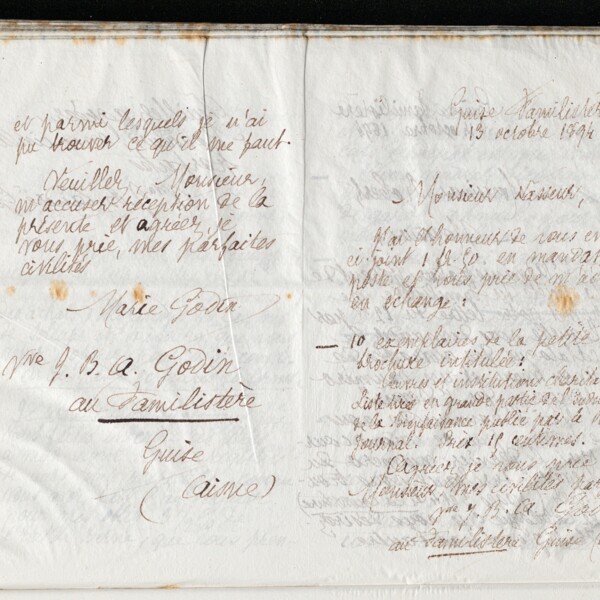 et parmi lesquels je n'ai
pu trouver ce qu'il me faut.
Veuillez, Monsieur,
m'accuser réception de la
présente et agréer, je
vous prie, mes parfaites
civilités
Marie Godin
Vve J. B. A. Godin
au Familistère
Guise
(Aisne)
Guise Familistère
13 octobre 1894
Monsieur Vasseur,
J'ai l'honneur de vous en
ci-joint 1 f. 50 en mandat
poste et vous prie de m'a
en échange :
10 exemplaires de la petite
brochure intitulée :
Oeuvres et institutions charita
en grande partie de
de la Bienfaisance publié par le
Journal. Prix 15 centimes.
je vous prie
Monsieur, mes civilités
Vve J. B. A. God
au Familistère Guise